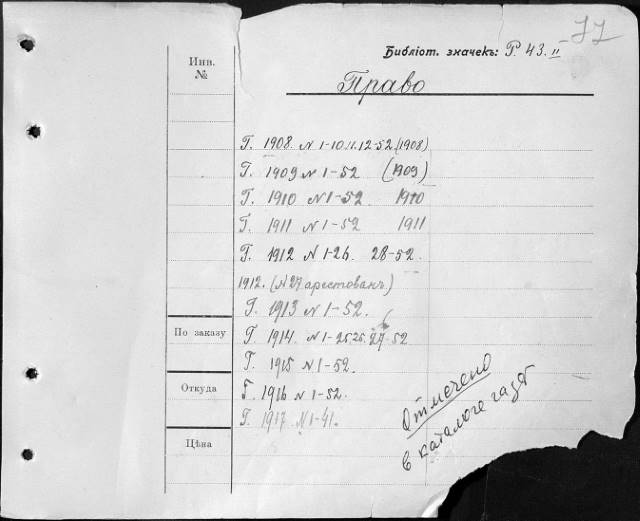 77
Библіот. значекъ: Р 43. II
Инв.
№
Право
Г. 1908. N 1-10.11.12-52 (1908)
Г. 1909 N 1-52 (1909)
Г. 1910 N 1-52. 1910
Г. 1911 N 1-52 1911
Г. 1912 N 1-26. 28-52.
1912. (N 27 арестованъ)
Г. 1913 N 1-52.
По заказу
Г. 1914. N 1-25 26. 27-52
Г. 1915 N 1-52.
Откуда
Г. 1916 N 1-52.
Г. 1917. N 1-41.
Цѣна
Отмечено
в каталоге газет